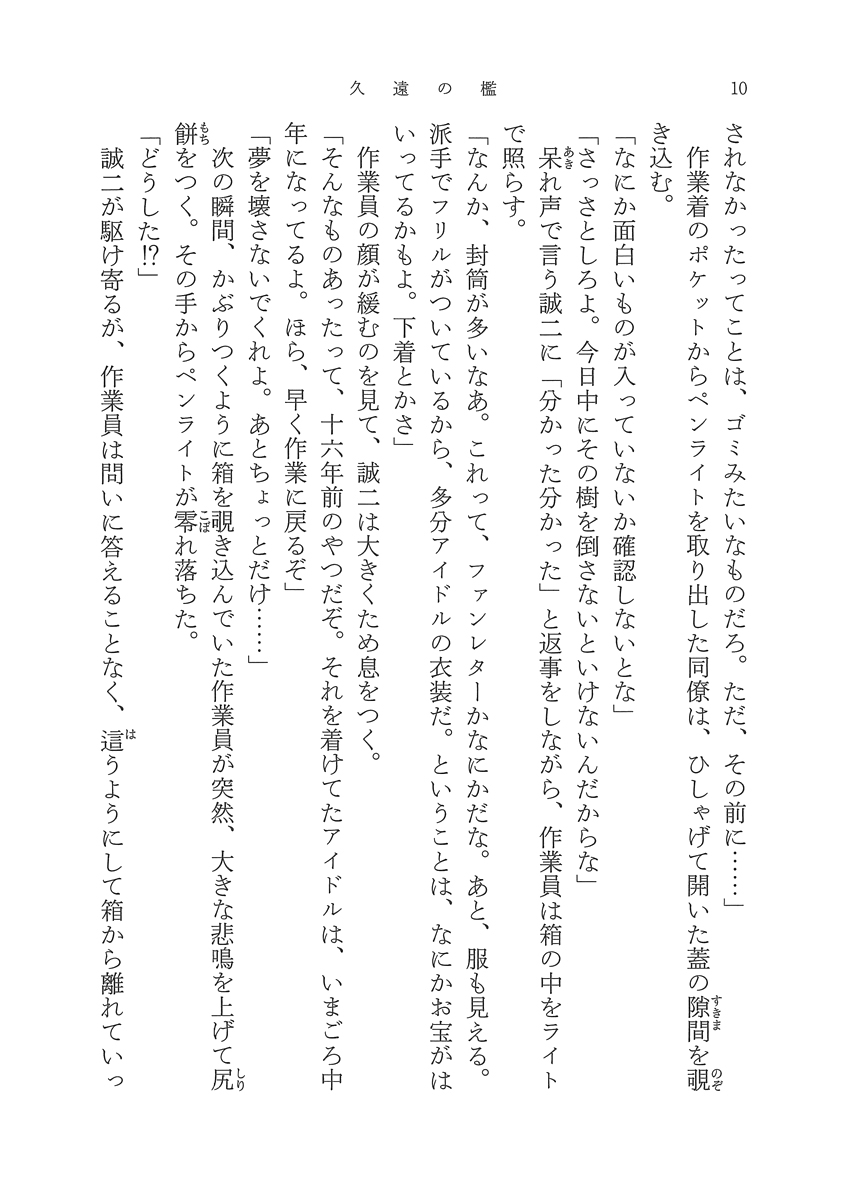 10
久遠の檻
されなかったってことは、ゴミみたいなものだろ。ただ、その前に……」
作業着のポケットからペンライトを取り出した同僚は、ひしゃげて開いた蓋の隙間を覗
き込む。
「なにか面白いものが入っていないか確認しないとな」
「さっさとしろよ。今日中にその樹を倒さないといけないんだからな」
呆れ声で言う誠二に「分かった分かった」と返事をしながら、作業員は箱の中をライト
で照らす。
「なんか、封筒が多いなあ。これって、ファンレターかなにかだな。あと、服も見える。
派手でフリルがついているから、多分アイドルの衣装だ。ということは、なにかお宝がは
いってるかもよ。下着とかさ」
作業員の顔が緩むのを見て、誠二は大きくため息をつく。
「そんなものあったって、十六年前のやつだぞ。それを着けてたアイドルは、いまごろ中
年になってるよ。ほら、早く作業に戻るぞ」
「夢を壊さないでくれよ。あとちょっとだけ……」
次の瞬間、かぶりつくように箱を覗き込んでいた作業員が突然、大きな悲鳴を上げて尻
餅をつく。その手からペンライトが零れ落ちた。
「どうした!?」
誠二が駆け寄るが、作業員は問いに答えることなく、這うようにして箱から離れていっ
すきま
のぞ
あき
しり
もち
こぼ
は